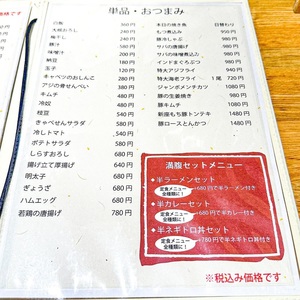 単品・おつまみ
白飯 360円
大根おろし 240円
梅干し 240円
豚汁
味噌汁
納豆
玉子
キャベツのおしんこ 380円
アジの骨せんべい 380円
キムチ 480円
冷奴 480円
枝豆 580円
きゃべせんサラダ 580円
冷しトマト 580円
ポテトサラダ 580円
しらすおろし 680円
揚げ立て厚揚げ 680円
明太子 680円
ぎょうざ 680円
ハムエッグ 680円
若鶏の唐揚げ 780円
本日の焼き魚 日替わり
もつ煮込み 980円
豚冷しゃぶ 980円
サバの唐揚げ 980円
サバの味噌煮込み 980円
インドまぐろぶつ 980円
特大アジフライ 980円
特大海老フライ 1尾 720円
ジャンボメンチカツ 1180円
豚の生姜焼き 980円
豚キムチ 1080円
新座もち豚トンテキ 1480円
豚ロースとんかつ 1480円
満腹セットメニュー
・半ラーメンセット
定食メニュー全種類に!
+680円で半ラーメン付き
・半カレーセット
定食メニュー全種類に!
+680円で半カレー付き
・半ネギトロ丼セット
定食メニュー全種類に!
+780円で半ネギトロ丼付き
※税込み価格です